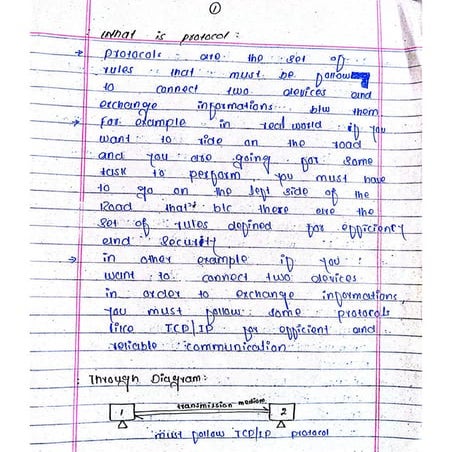 ①
What is protocol :
→ Protocols are the set of
rules that must be follow
to connect two devices and
exchange informations b/w them.
→ For example in real world if you
want to ride on the road
and you are going for some
task to perform, you must have
to go on the left side of the
Road that's b/c there are the
set of rules defined for efficiency
and security
→ in other example if you
want to connect two devices
in order to exchange informations,
you must follow some protocols
like TCP/IP for efficient and
reliable communication
Through Diagram:
transmission medium
1 2
must follow TCP/IP protocol